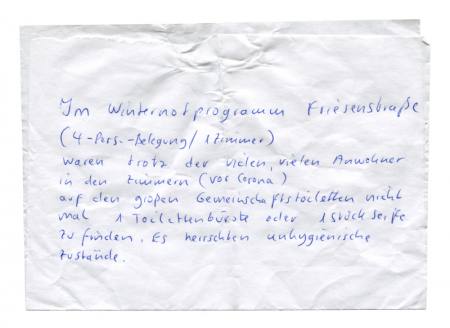 Im Winternotprogramm Friesenstraße
(4-Pers.-Belegung/1 Zimmer)
waren trotz der vielen, vielen Anwohner
in den Zimmern (vor Corona)
auf den großen Gemeinschaftstoiletten nicht
mal 1 Toilettenbürste oder 1 Stück Seife
zu finden. Es herrschten unhygienische
Zustände.